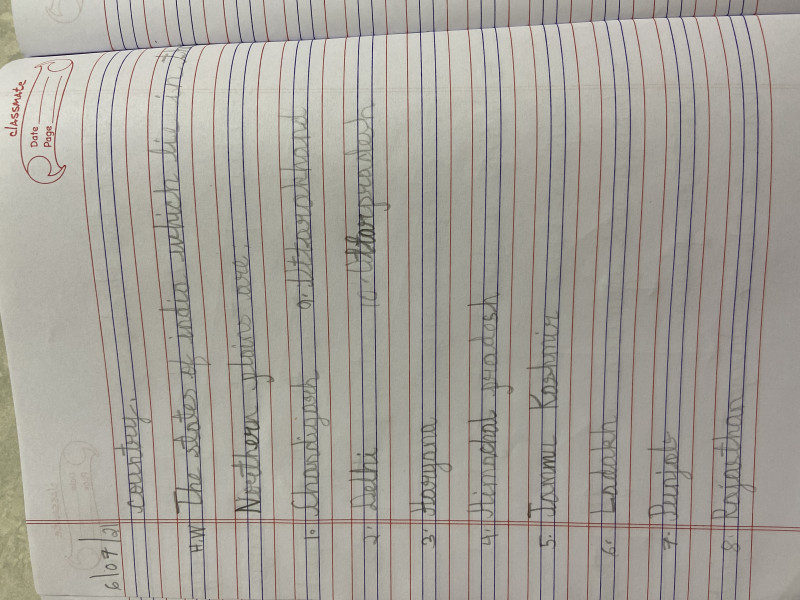 classmate
Date
Page
6/07/21
country.
H.W The states of india which lie in the
Northern plains are.
1. Chandigarh 9. Uttarakhand
2. Delhi 10. Uttarpradesh
3. Haryana
4. Himachal pradesh
5. Jammu Kashmir
6. Ladakh
7. Punjab
8. Rajasthan